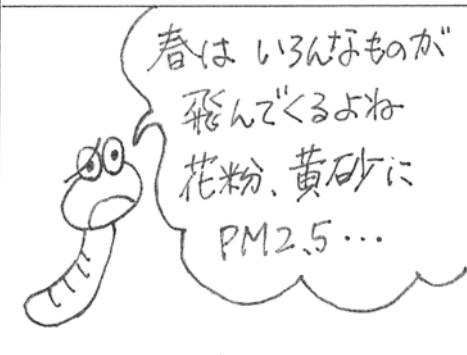 春は いろんなものが
飛んでくるよね
花粉、黄砂に
PM2.5・・・